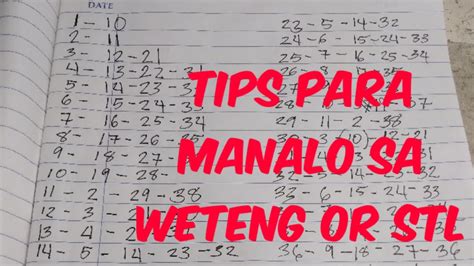 DATE
1 - 10
2 - 11
3 - 12 - 21
4 - 13 - 22 - 31
5 - 14 - 23
6 - 15 - 24 - 33
7 - 16 - 25 - 34
8 - 17 - 26 - 35
9 - 18 - 27
10 - 19 - 28 -
11 - 2 - 29 - 38
12 - 3 -
13 - 4 -
14 - 5 - 14 - 23 - 32
23 - 5 - 14 - 32
24 - 6 - 15 - 24 - 33
25 - 7 - 16 - 25 - 34
26 - 8 - 17
29 - 11 - 2 - 38
30 - 3 - (10) - 12 - 21
33 - 6 - 15 - 24 - 33
36 - 9 - 18 - 27 - 36
TIPS PARA
MANALO SA
WETENG OR STL